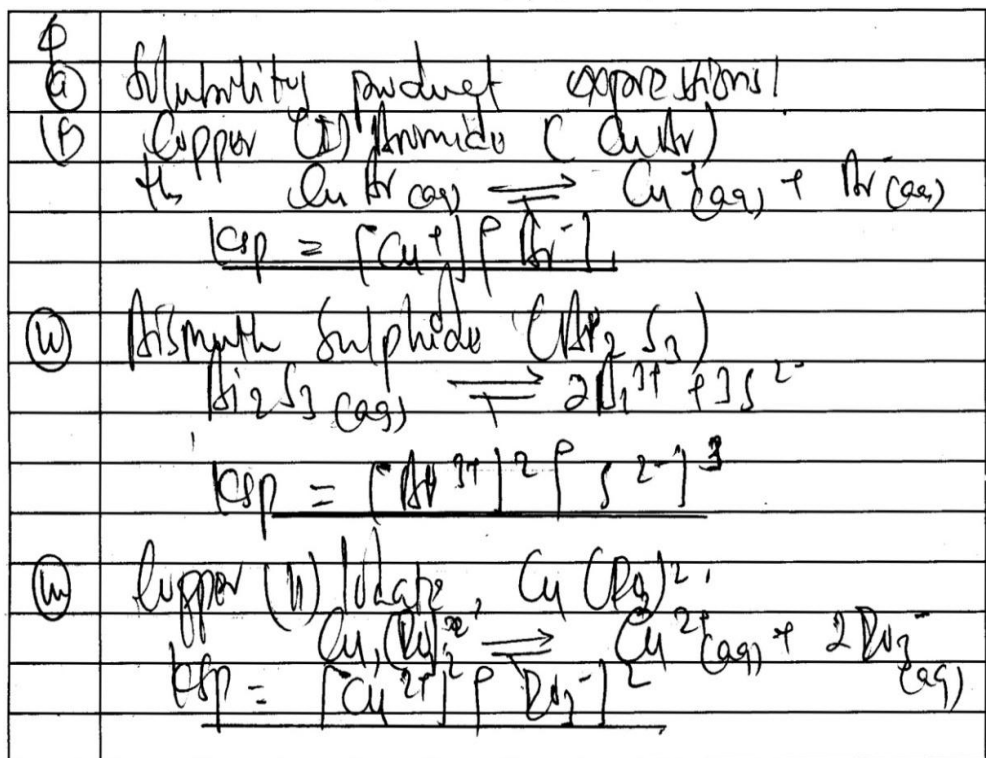 (a) Solubility product expressions!
(i) Copper (I) Bromide (CuBr)
CuBr (aq) ⇌ Cu⁺(aq) + Br⁻(aq)
Ksp = [Cu⁺][Br⁻].
(ii) Bismuth Sulphide (Bi₂S₃)
Bi₂S₃ (aq) ⇌ 2Bi³⁺ + 3S²⁻
Ksp = [Bi³⁺]²[S²⁻]³
(iii) Copper (II) Iodate, Cu(IO₃)₂.
Cu(IO₃)₂ ⇌ Cu²⁺(aq) + 2IO₃⁻(aq)
Ksp = [Cu²⁺][IO₃⁻]²